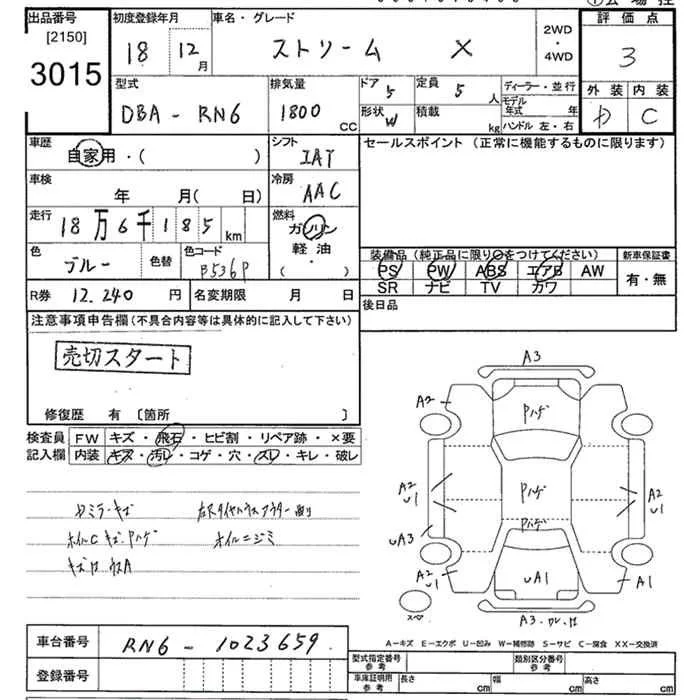 出品番号 初度登録年月 車名・グレード 評価点
[2150]
3015
18 12月 ストリーム X 2WD・4WD 3
外装 内装
D C
型式 排気量 ドア 定員 ディーラー・並行
DBA-RN6 1800 CC 5 5 人 モデル年式 年
形状 W 積載 kg ハンドル 左・右
車歴 シフト セールスポイント (正常に機能するものに限ります)
自家用・( ) IAT
車検 冷房
年 月( 日) AAC
走行 燃料
18万6千185 km ガソリン
軽油・
( )
色 色替 色コード
ブルー B536P
装備品(純正品に限り○をつけてください) 新車保証書
PS PW ABS エアB AW 有・無
SR ナビ TV カワ
R券 12,240 円 名変期限 月 日 後日品
注意事項申告欄(不具合内容等は具体的に記入して下さい)
売切スタート
修復歴 有 [箇所 ]
検査員 FW キズ・飛石・ヒビ割・リペア跡・×要
記入欄 内装 キズ・汚レ・コゲ・穴・スレ・キレ・破レ
ミラーキズ
ホイルCキズ Pハゲ オイルニジミ
A3
A2 Pハゲ
A2 U1 Pハゲ A2 U1
Pハゲ
UA3
A2 U1 UA1 A1
スペア
A3
A-キズ E-エクボ U-凹み W-補修跡 S-サビ C-腐食 XX-交換済
車台番号 RN6-1023659
登録番号
型式指定番号 参考 類別区分番号 参考
車庫証明用 参考 長さ cm 幅 cm 高さ cm